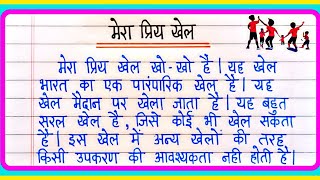 मेरा प्रिय खेल
मेरा प्रिय खेल खो-खो है | यह खेल
भारत का एक पारंपारिक खेल है | यह
खेल मैदान पर खेला जाता है | यह बहुत
सरल खेल है , जिसे कोई भी खेल सकता
है | इस खेल में अन्य खेलों की तरह
किसी उपकरण की आवश्यकता नही होती है |